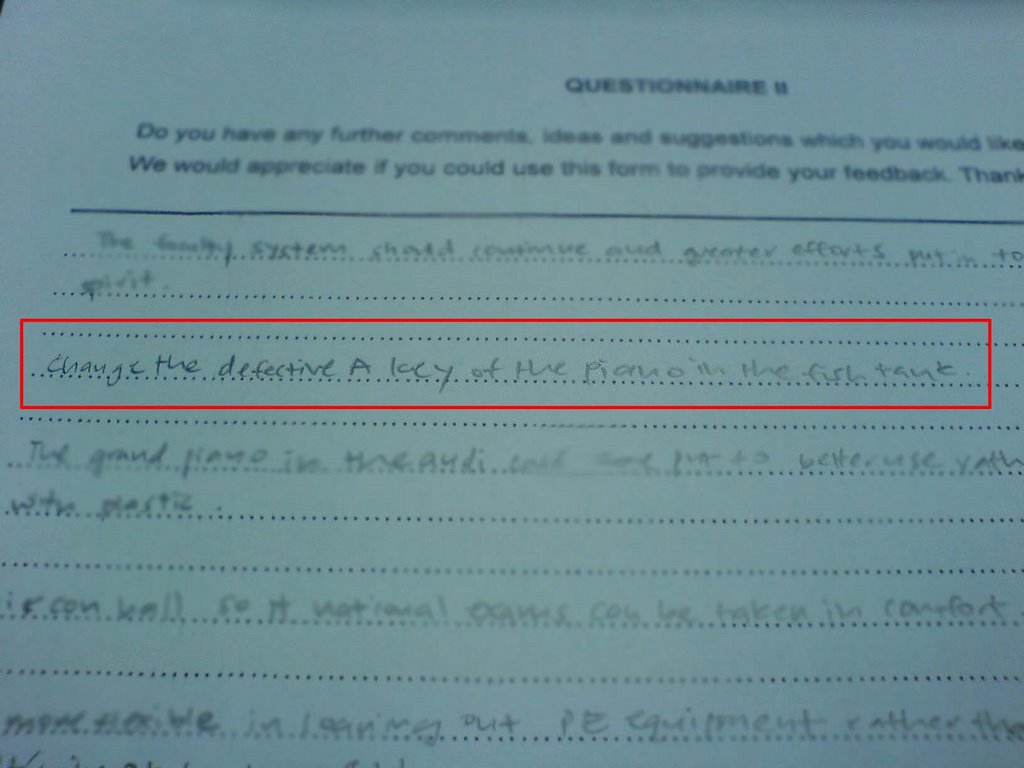 QUESTIONNAIRE II
Do you have any further comments, ideas and suggestions which you would like
We would appreciate if you could use this form to provide your feedback. Thank
The faculty system should continue and greater efforts put in to
spirit.
Change the defective A key of the piano in the fish tank.
The grand piano in the audi put to better use rath
with plastic.
so national exams can be taken in comfort.
more flexible in loaning out PE equipment rather tha